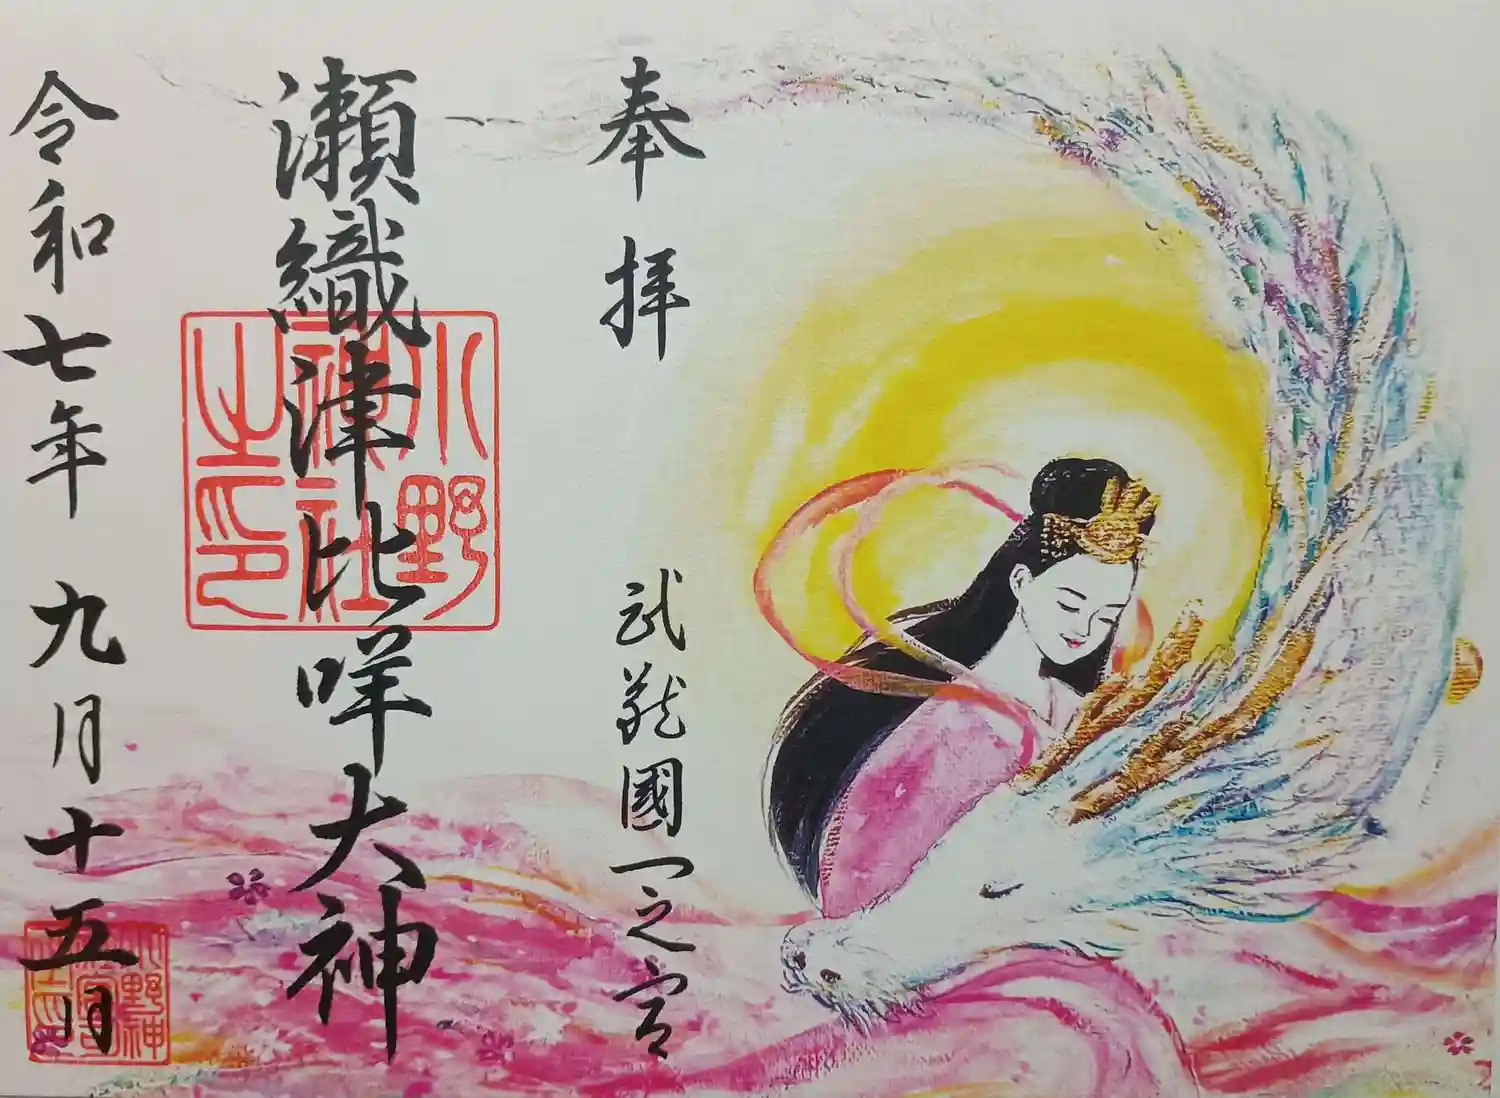 奉拝
武蔵國一之宮
瀬織津比咩大神
小野神社之印
令和七年 九月十五日